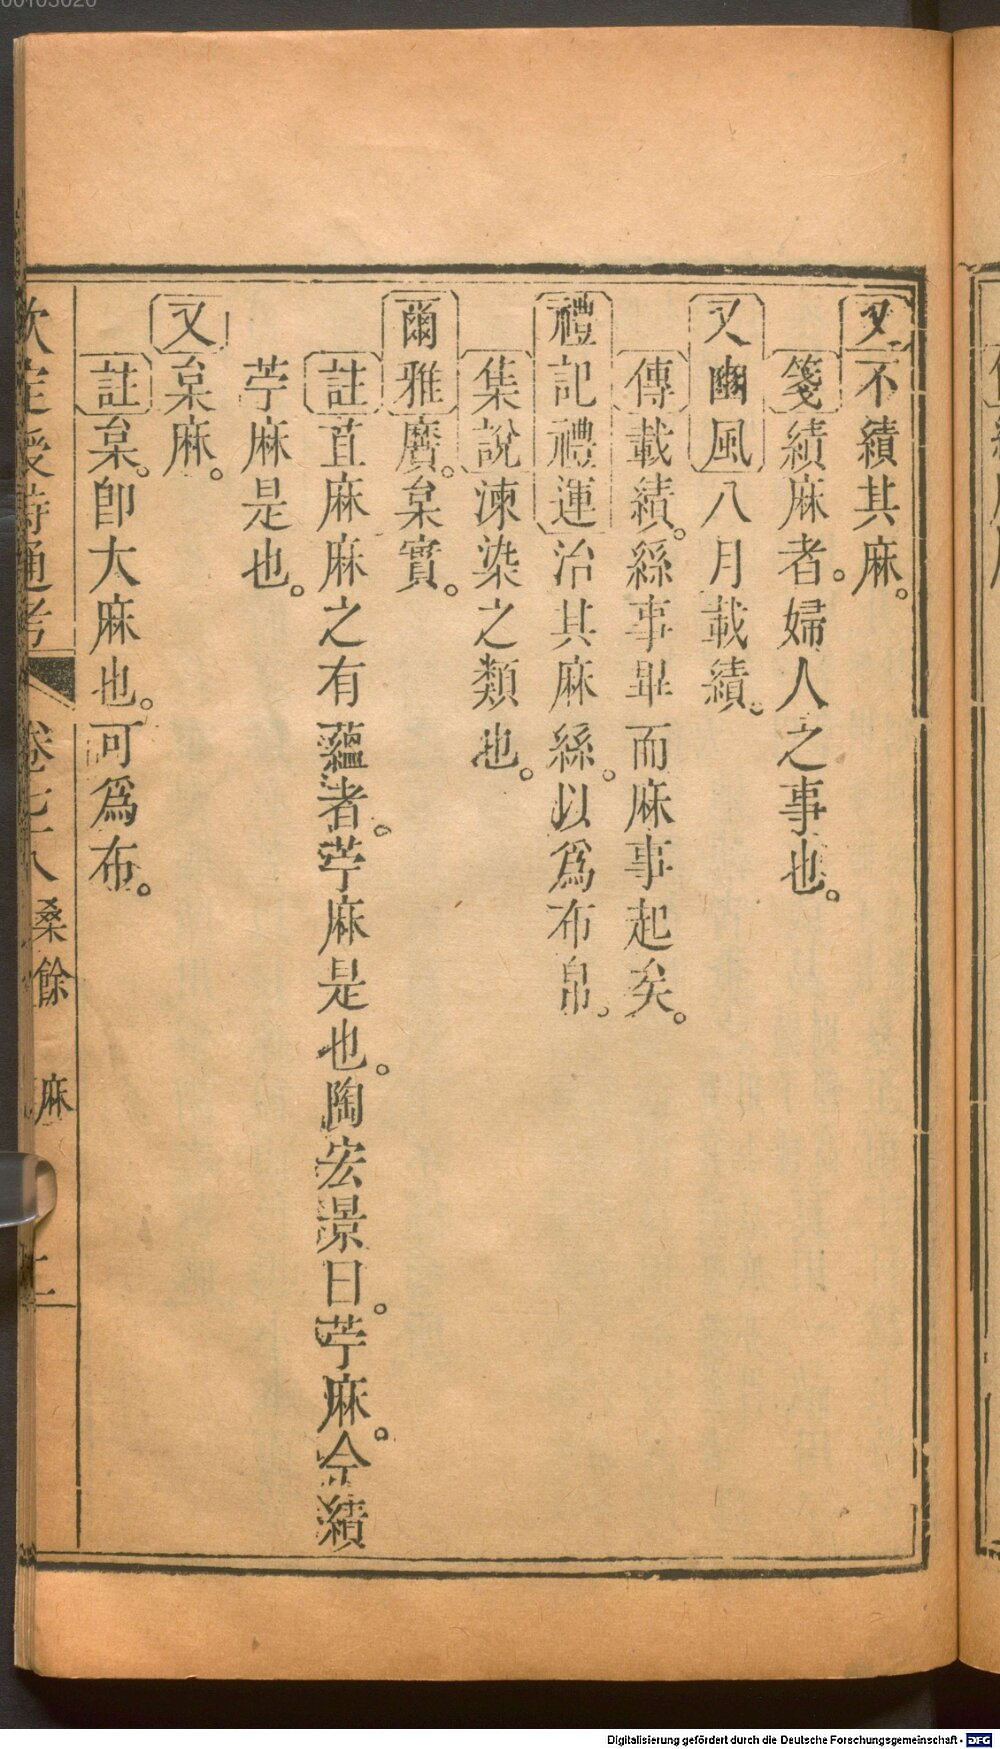 又不績其麻。
箋績麻者。婦人之事也。
又豳風八月載績。
傳載績。絲事畢而麻事起矣。
禮記禮運治其麻絲。以爲布帛。
集說湅染之類也。
爾雅黂。枲實。
註苴麻麻之有蘊者。苧麻是也。陶宏景曰。苧麻。今績
苧麻是也。
又枲麻。
註枲。卽大麻也。可爲布。
欽定授時通考 卷七十八 桑餘 麻 二
Digitalisierung gefördert durch die Deutsche Forschungsgemeinschaft - DFG